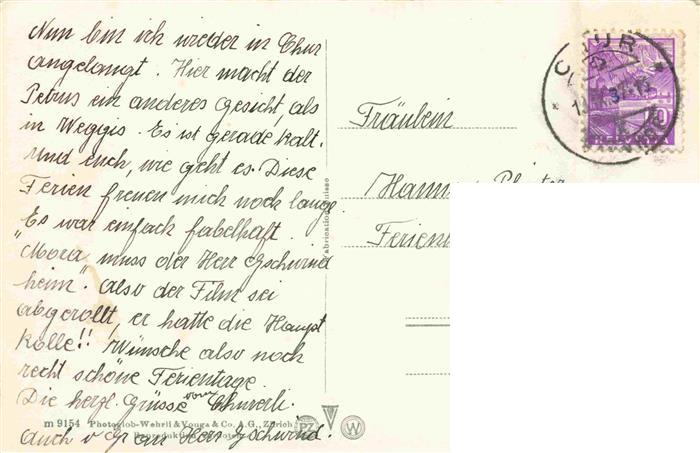 Nun bin ich wieder in Chur
angelangt. Hier macht der
Petrus ein anderes Gesicht, als
in Weggis. Es ist gerade kalt.
Und euch, wie geht es. Diese
Ferien freuen mich noch lange.
Es war einfach fabelhaft.
"Mora" muss der Herr Gschwind
heim. also der Film sei
abgerollt, er hatte die Haupt
Rolle!! Wünsche also noch
recht schöne Ferientage.
Die herzl. Grüsse vom Churerli.
m 9154 Photoglob-Wehrli & Vouga & Co. A.G., Zürich
Auch v Gr ein Herr Gschwind.
Fräulein
Ferien
CHUR
PZ
W